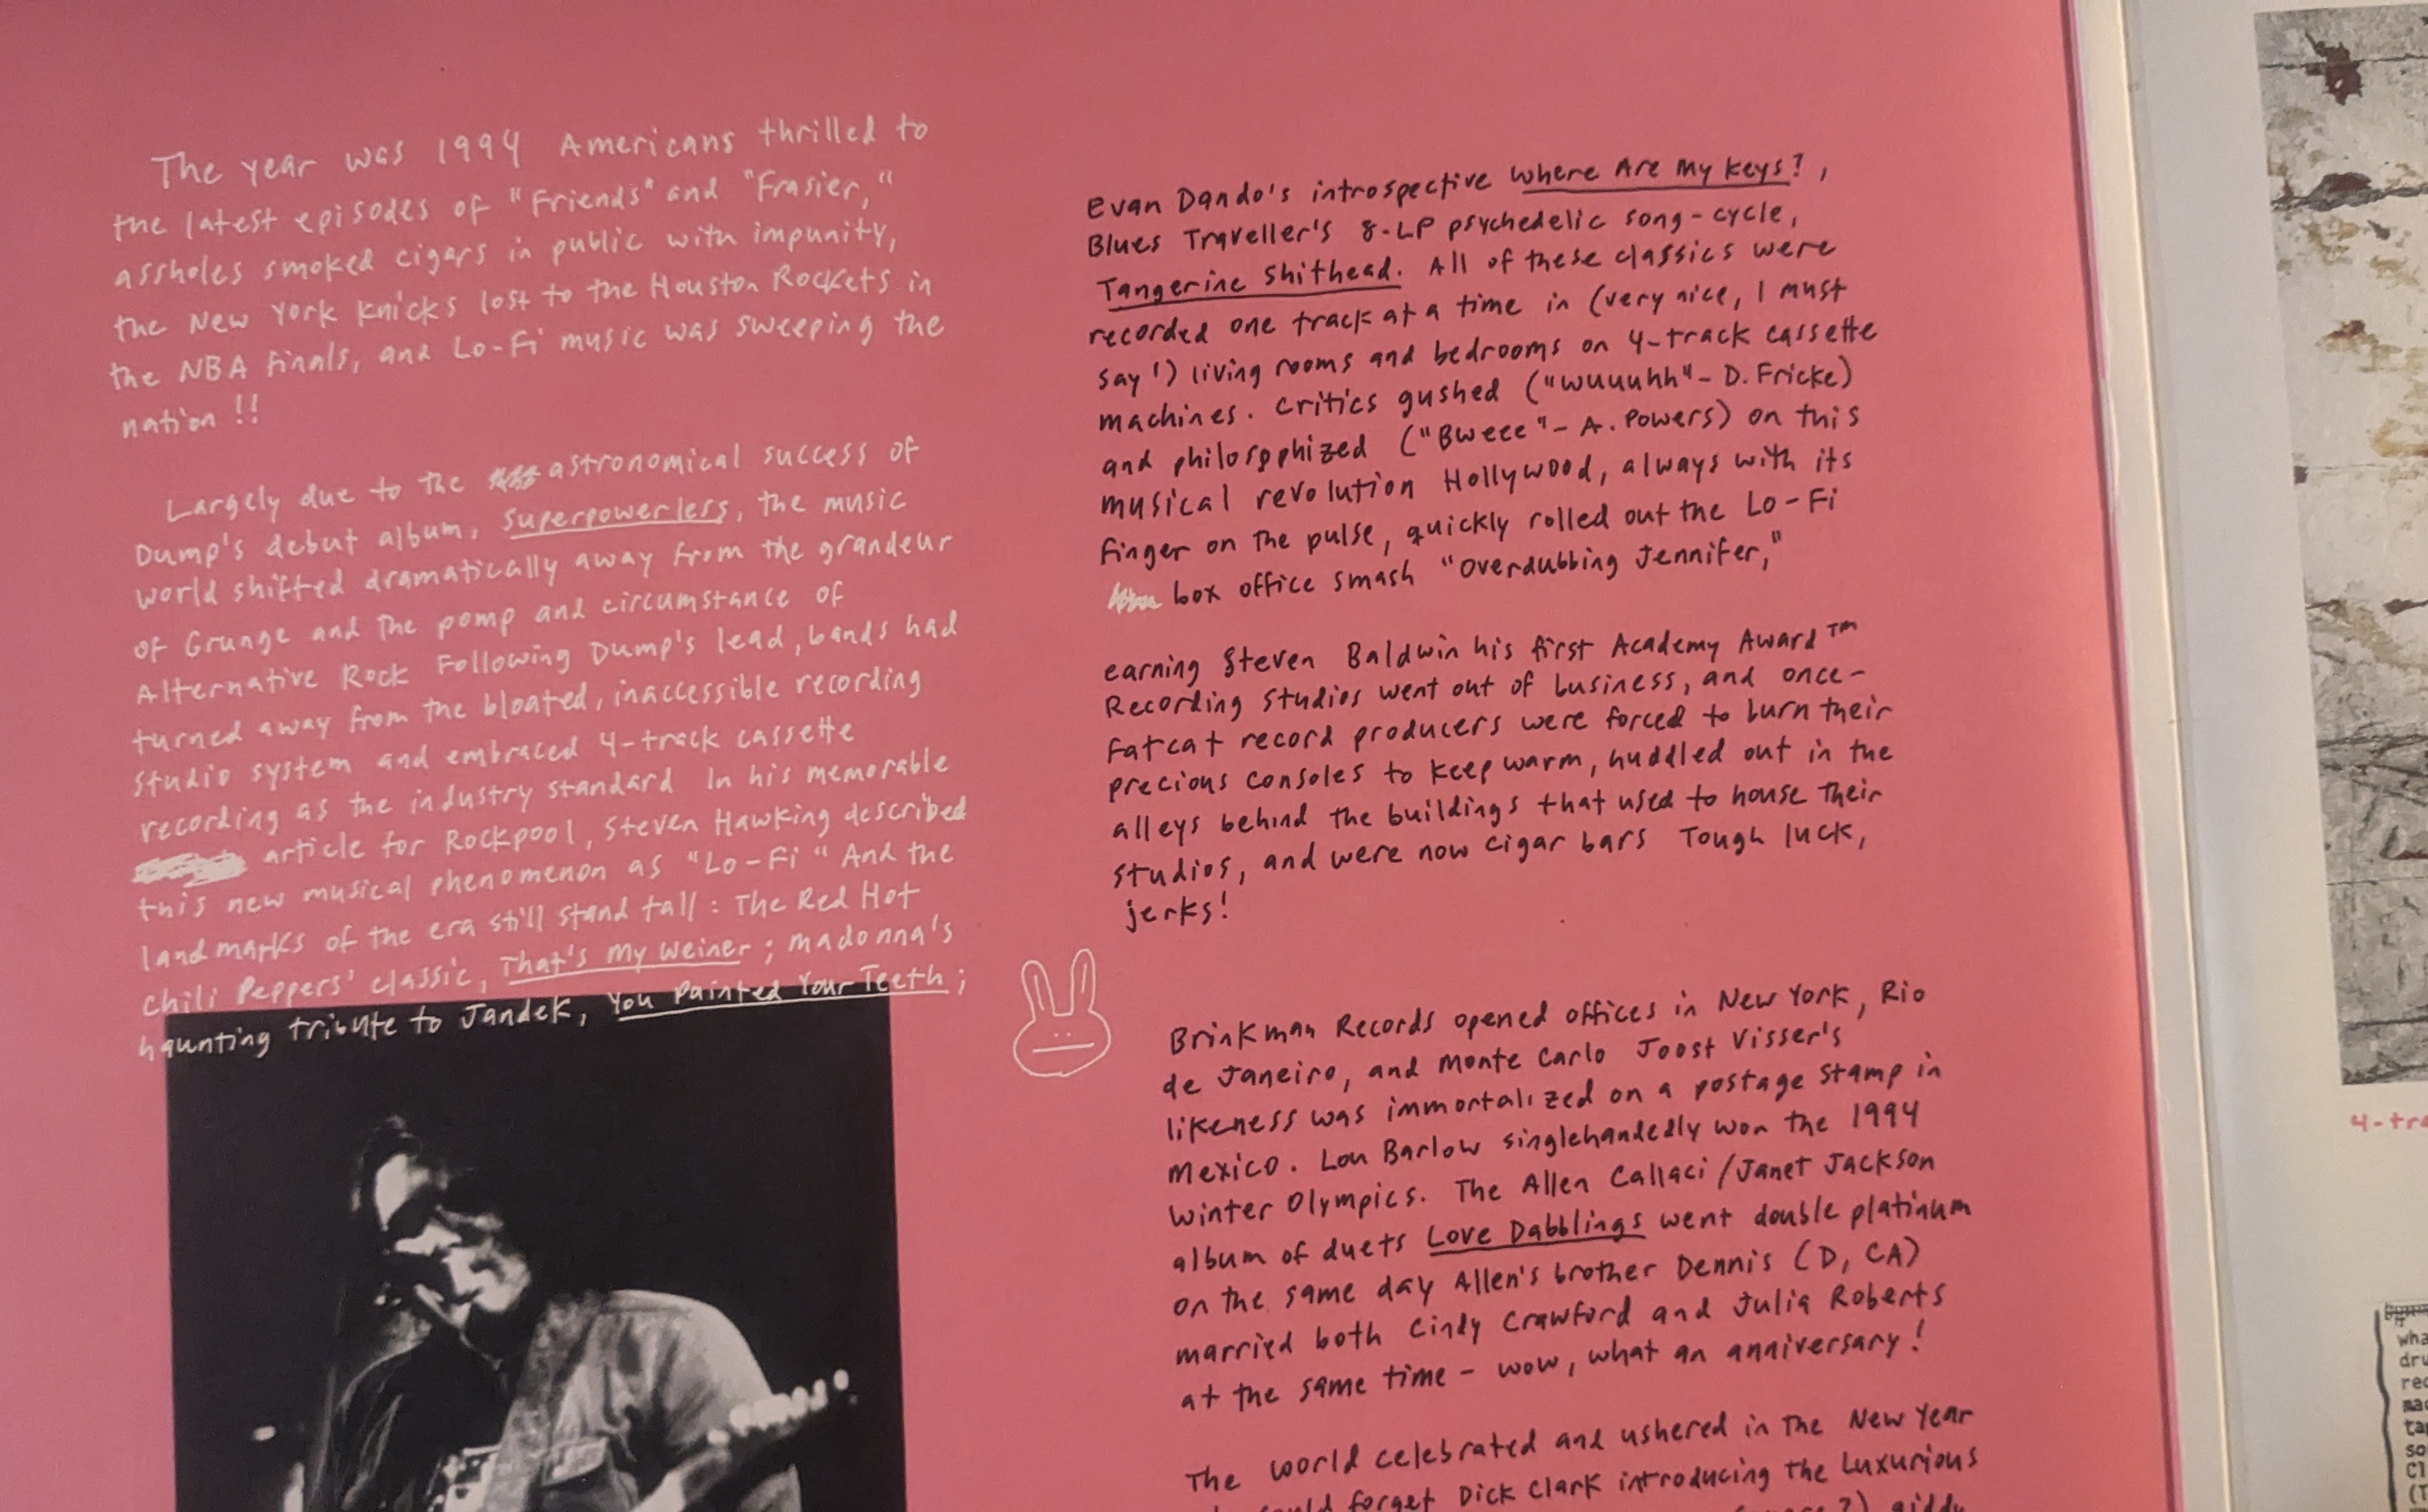 The year was 1994 Americans thrilled to
the latest episodes of "Friends" and "Frasier,"
assholes smoked cigars in public with impunity,
the New York Knicks lost to the Houston Rockets in
the NBA finals, and Lo-Fi music was sweeping the
nation!!
Largely due to the astronomical success of
Dump's debut album, Superpowerless, the music
world shifted dramatically away from the grandeur
of Grunge and the pomp and circumstance of
Alternative Rock Following Dump's lead, bands had
turned away from the bloated, inaccessible recording
studio system and embraced 4-track cassette
recording as the industry standard In his memorable
article for Rockpool, Steven Hawking described
this new musical phenomenon as "Lo-Fi" And the
landmarks of the era still stand tall: The Red Hot
Chili Peppers' classic, That's My Weiner; Madonna's
haunting tribute to Jandek, You Painted Your Teeth;
Evan Dando's introspective Where Are My Keys?,
Blues Traveller's 8-LP psychedelic song-cycle,
Tangerine Shithead. All of these classics were
recorded one track at a time in (very nice, I must
say!) living rooms and bedrooms on 4-track cassette
machines. Critics gushed ("Wuuuhh" - D. Fricke)
and philosophized ("Bweee" - A. Powers) on this
musical revolution Hollywood, always with its
finger on the pulse, quickly rolled out the Lo-Fi
box office smash "Overdubbing Jennifer,"
earning Steven Baldwin his first Academy Award™
Recording studios went out of business, and once-
fatcat record producers were forced to burn their
precious consoles to keep warm, huddled out in the
alleys behind the buildings that used to house their
studios, and were now cigar bars Tough luck,
jerks!
Brinkman Records opened offices in New York, Rio
de Janeiro, and Monte Carlo Joost Visser's
likeness was immortalized on a postage stamp in
Mexico. Lou Barlow singlehandedly won the 1994
Winter Olympics. The Allen Callaci/Janet Jackson
album of duets Love Dabblings went double platinum
on the same day Allen's brother Dennis (D, CA)
married both Cindy Crawford and Julia Roberts
at the same time - wow, what an anniversary!
The world celebrated and ushered in the New Year
forget Dick Clark introducing the Luxurious
4-tra